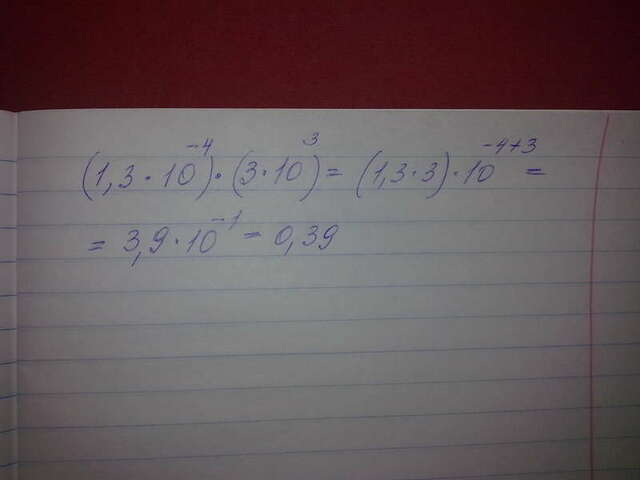 (1,3 · 10⁻⁴) · (3 · 10³) = (1,3 · 3) · 10⁻⁴⁺³ =
= 3,9 · 10⁻¹ = 0,39